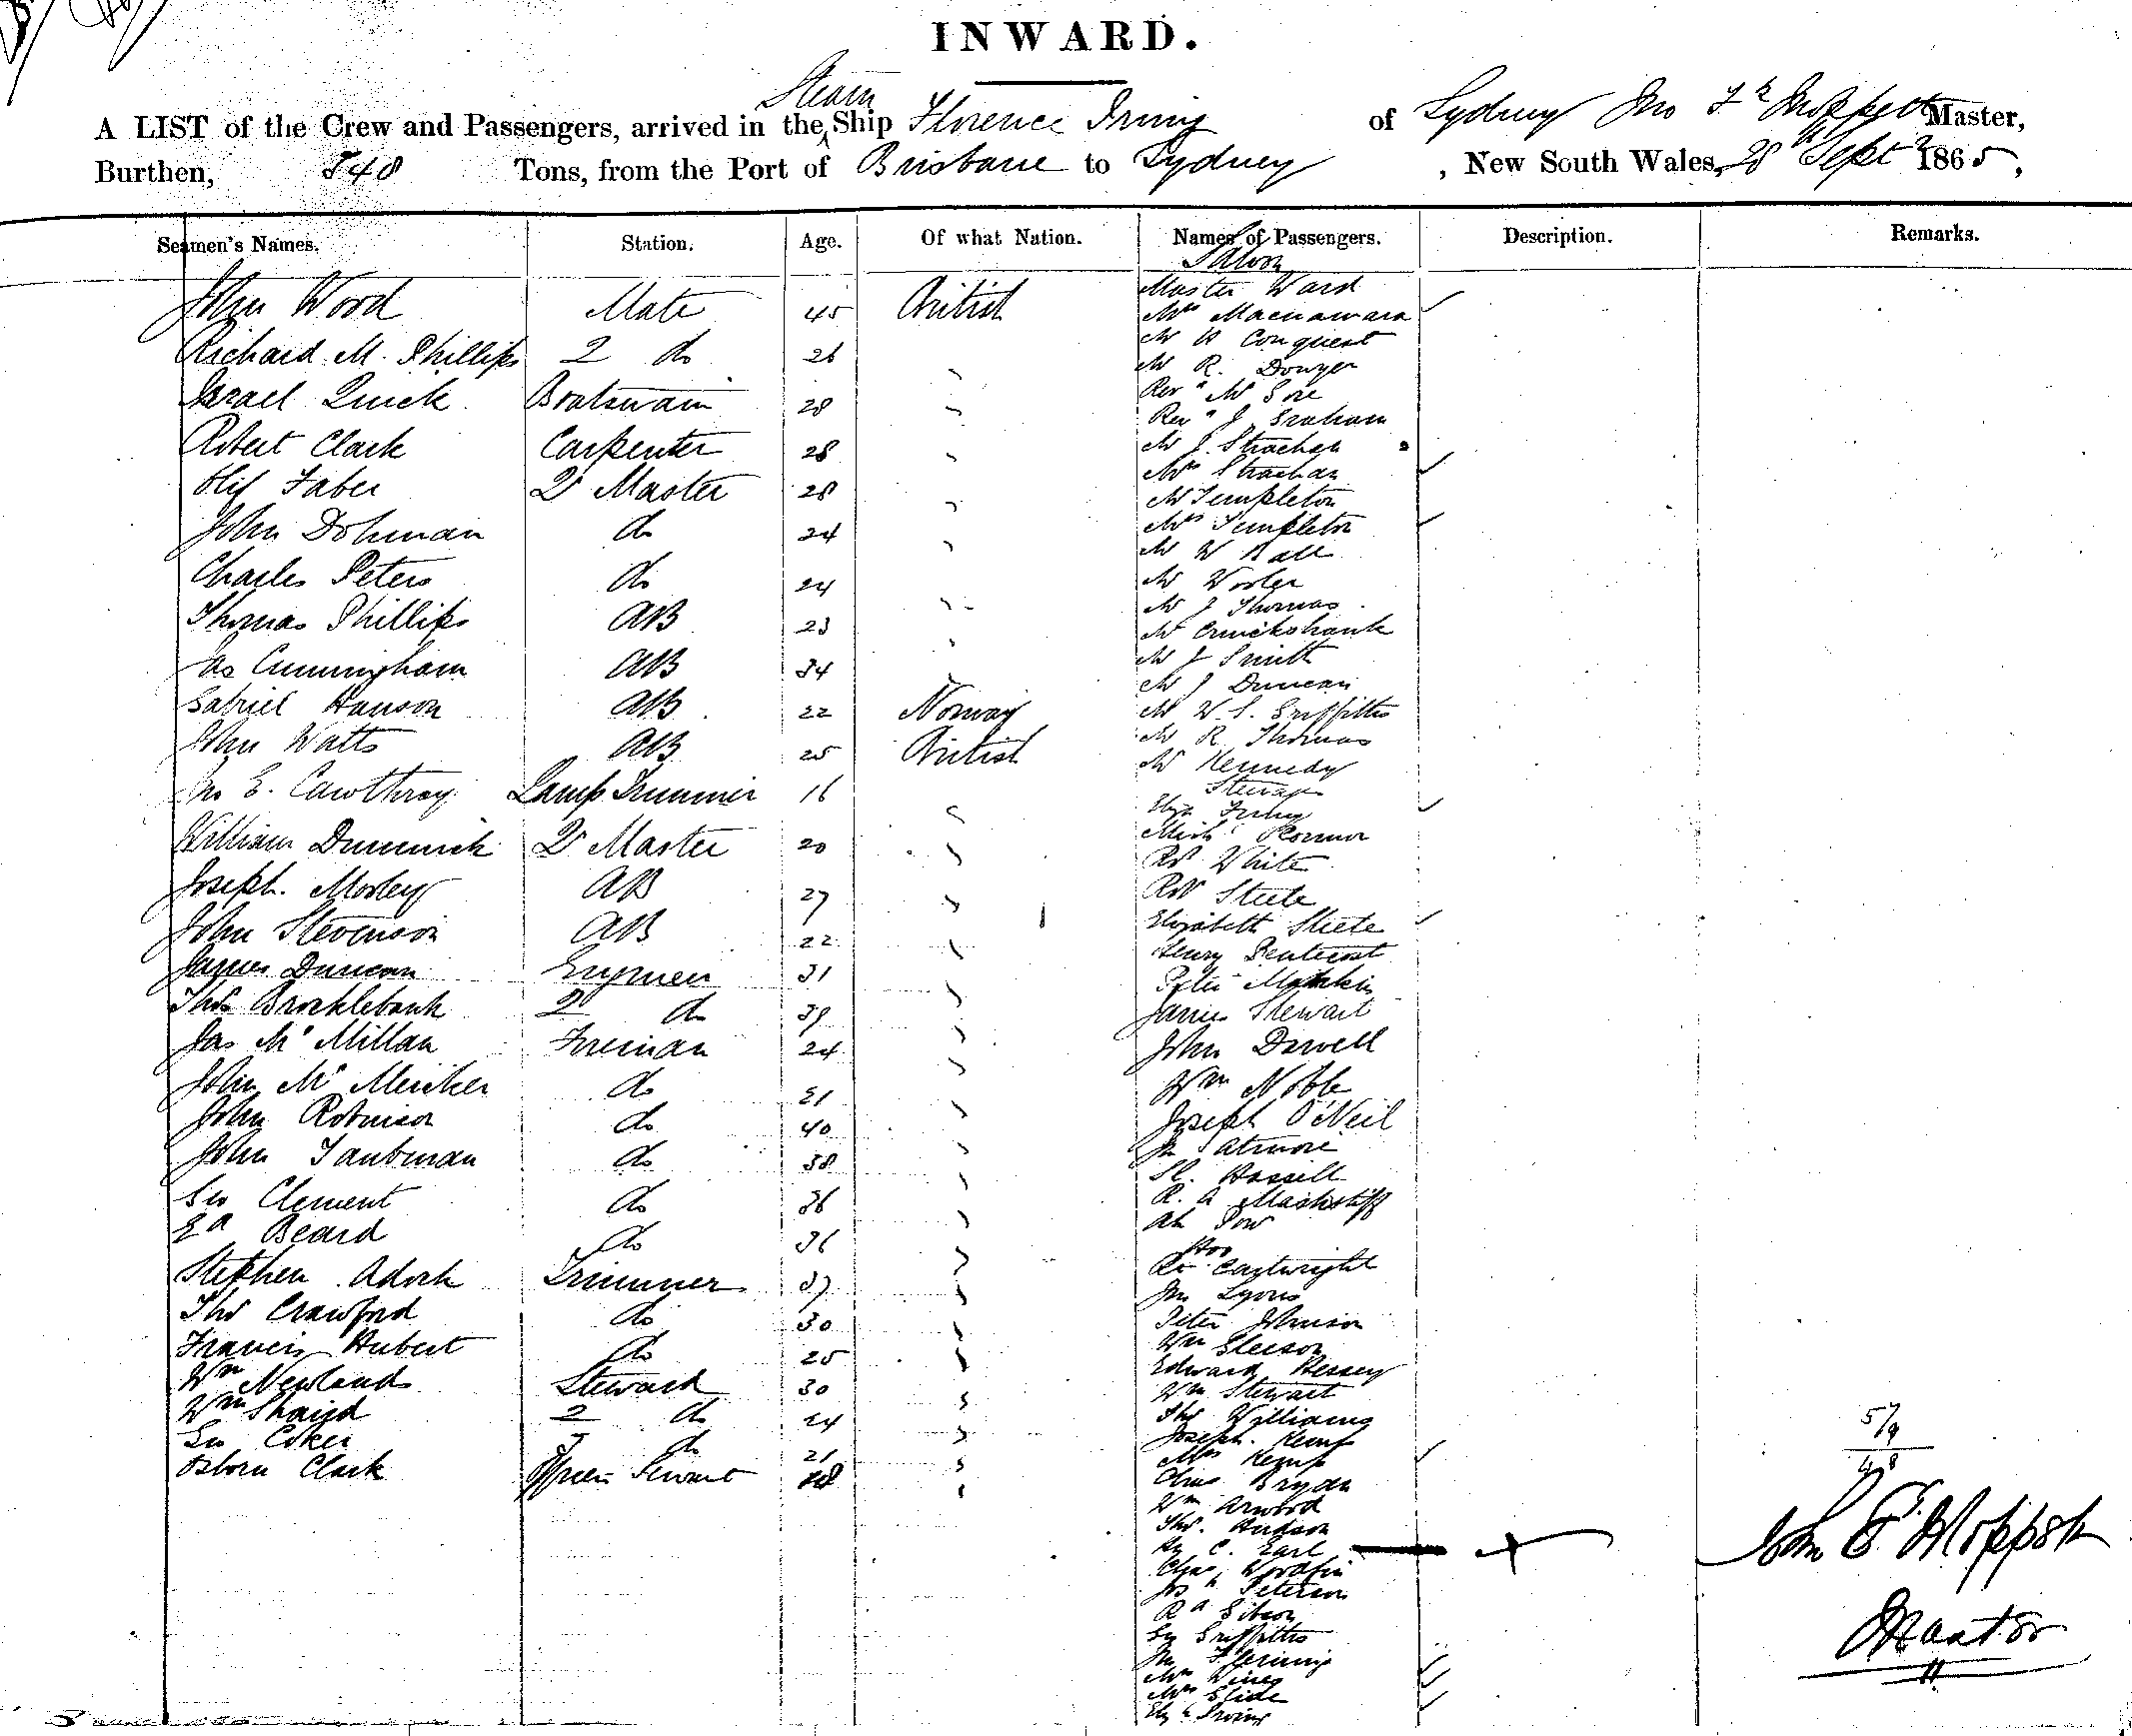 INWARD.
A LIST of the Crew and Passengers, arrived in the Steam Ship Florence Irving of Sydney Jno Fk Moppett Master,
Burthen, 548 Tons, from the Port of Brisbane to Sydney, New South Wales, 28th Sept 1865,
Seamen's Names. Station. Age. Of what Nation. Names of Passengers. Description. Remarks.
Saloon
John Wood Mate 45 British
Richard M. Phillips 2 do 26
Israel Quick Boatswain 28
Robert Clark Carpenter 28
Faber Qr Master 28
John Dohman do 24
Charles Peters do 24
Thomas Phillips AB 23
Jas Cunningham AB 34
Gabriel Hanson AB 22 Norway
John Watts AB 25 British
Jno E. Cawthray Lamp Trimmer 16
William Qr Master 20
Joseph Morley AB 27
John Stevenson AB 22
James Duncan Engineer 31
Thos Brocklebank 2d do 39
Jas McMillan Fireman 24
John McMeiker do 21
John Robinson do 40
John Taubman do 38
Geo Clement do 36
Ed Beard do 36
Stephen Adock Trimmer 37
Thos Crawford do 30
Francis Hubert do do 25
Wm Newlands Steward 30
Wm 2 do 24
Geo Coker 3 do 21
Osborn Clark Servant 18
Master Ward
Mrs Macnamara
Mr A Conquest
Mr R. Dowyer
Revd Mr Gore
Revd J. Graham
Mr J. Strachan
Mrs Strachan
Mr Templeton
Mrs Templeton
Mr W Ball
Mr Wooler
Mr J Thomas
Mr Cruickshank
Mr J Smith
Mr J Duncan
Mr W. S. Griffiths
Mr R. Thomas
Mr Kennedy
Steerage
Eliza
Mich OConnor
Rt White
Robt Steele
Elizabeth Steele
Henry Pentecost
Peter
James Stewart
John Darvell
Wm Noble
Joseph O'Neil
Jn Patmore
Sl. Hassell
R. A
Ah Pow
Hoo
Cartwright
Jno Lyons
Peter Johnson
Wm Gleeson
Edward Hersey
Wm Stewart
Thos Williams
Joseph Kemp
Mrs Kemp
Chas Bryan
Wm Arwood
Thos. Hudson
Hy C. Earl
Chas Woodfin
Josh Peterson
Rd Gibson
Geo Griffiths
Jno Fleming
Mrs Hines
Mrs Glide
Elizth Irving
57/9
48
John F Moppett
Master